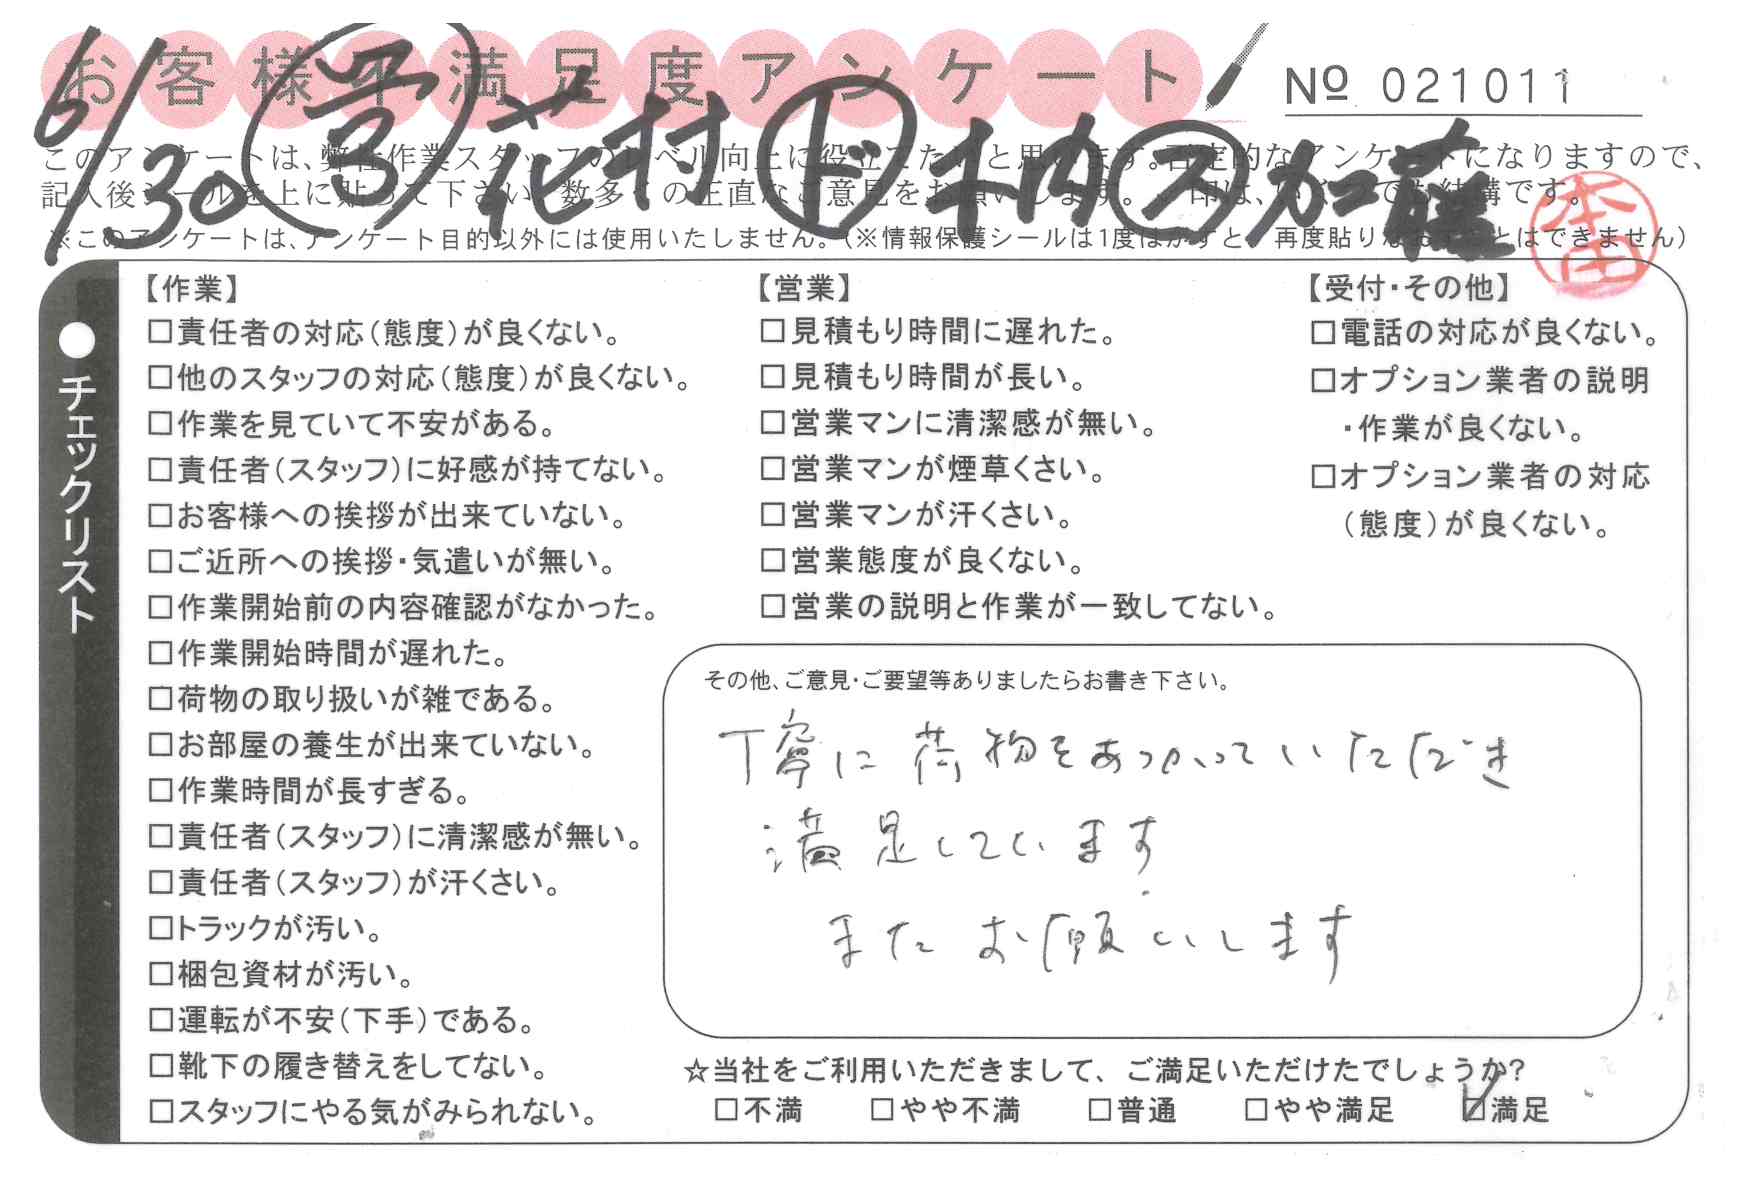 お客様不満足度アンケート
№ 021011
6/30 営 花村 ド 木内 ス 加藤
本田
このアンケートは、弊社作業スタッフのレベル向上に役立てたいと思います。否定的なアンケートになりますので、
記入後シールを上に貼って下さい。数多くの正直なご意見をお願いします。 印は、いくつでも結構です。
※このアンケートは、アンケート目的以外には使用いたしません。(※情報保護シールは1度はがすと、再度貼りなおすことはできません)
●チェックリスト
【作業】
□責任者の対応(態度)が良くない。
□他のスタッフの対応(態度)が良くない。
□作業を見ていて不安がある。
□責任者(スタッフ)に好感が持てない。
□お客様への挨拶が出来ていない。
□ご近所への挨拶・気遣いが無い。
□作業開始前の内容確認がなかった。
□作業開始時間が遅れた。
□荷物の取り扱いが雑である。
□お部屋の養生が出来ていない。
□作業時間が長すぎる。
□責任者(スタッフ)に清潔感が無い。
□責任者(スタッフ)が汗くさい。
□トラックが汚い。
□梱包資材が汚い。
□運転が不安(下手)である。
□靴下の履き替えをしてない。
□スタッフにやる気がみられない。
【営業】
□見積もり時間に遅れた。
□見積もり時間が長い。
□営業マンに清潔感が無い。
□営業マンが煙草くさい。
□営業マンが汗くさい。
□営業態度が良くない。
□営業の説明と作業が一致してない。
【受付・その他】
□電話の対応が良くない。
□オプション業者の説明
・作業が良くない。
□オプション業者の対応
(態度)が良くない。
その他、ご意見・ご要望等ありましたらお書き下さい。
丁寧に荷物をあつかっていただき
満足しています
またお願いします
☆当社をご利用いただきまして、ご満足いただけたでしょうか?
□不満 □やや不満 □普通 □やや満足 ☑満足